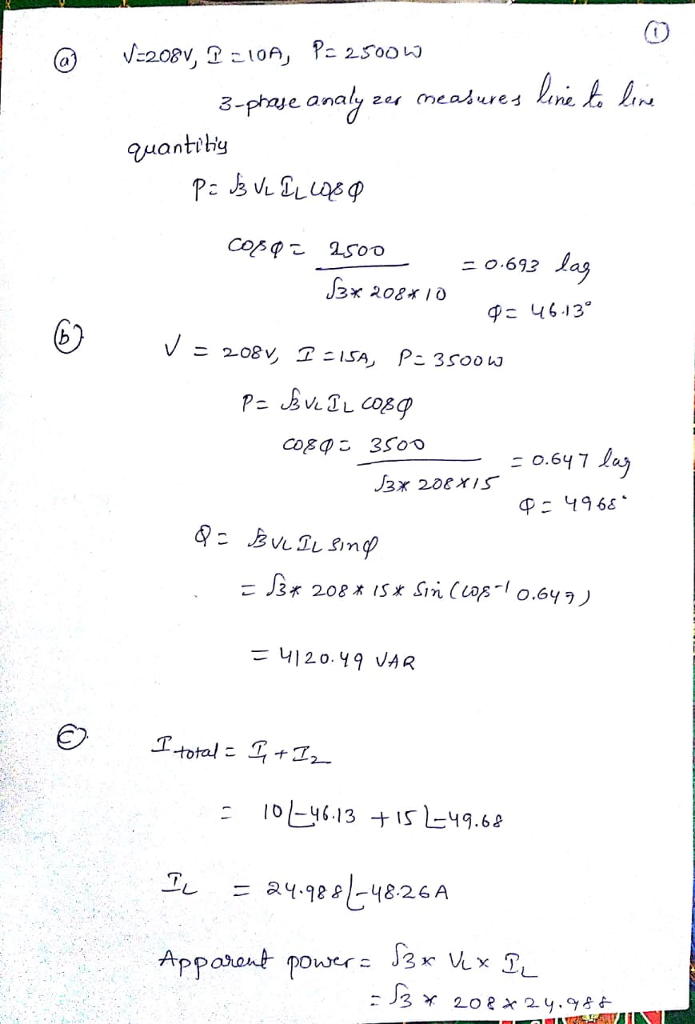 ①
ⓐ V=208V, I=10A, P=2500W
3-phase analyzer measures line to line
quantitiy
P= √3 VL IL cosφ
cosφ= 2500 / √3* 208*10 = 0.693 lag
φ= 46.13°
ⓑ V = 208V, I=15A, P=3500W
P= √3 VL IL cosφ
cosφ= 3500 / √3* 208*15 = 0.647 lag
φ= 4968°
Q= √3 VL IL sinφ
= √3* 208* 15* Sin (cos-1 0.647)
= 4120.49 VAR
ⓒ I total= I1+I2
= 10∠-46.13 +15∠-49.68
IL = 24.988∠-48.26A
Apparent power= √3x VLx IL
= √3 * 208*24.988